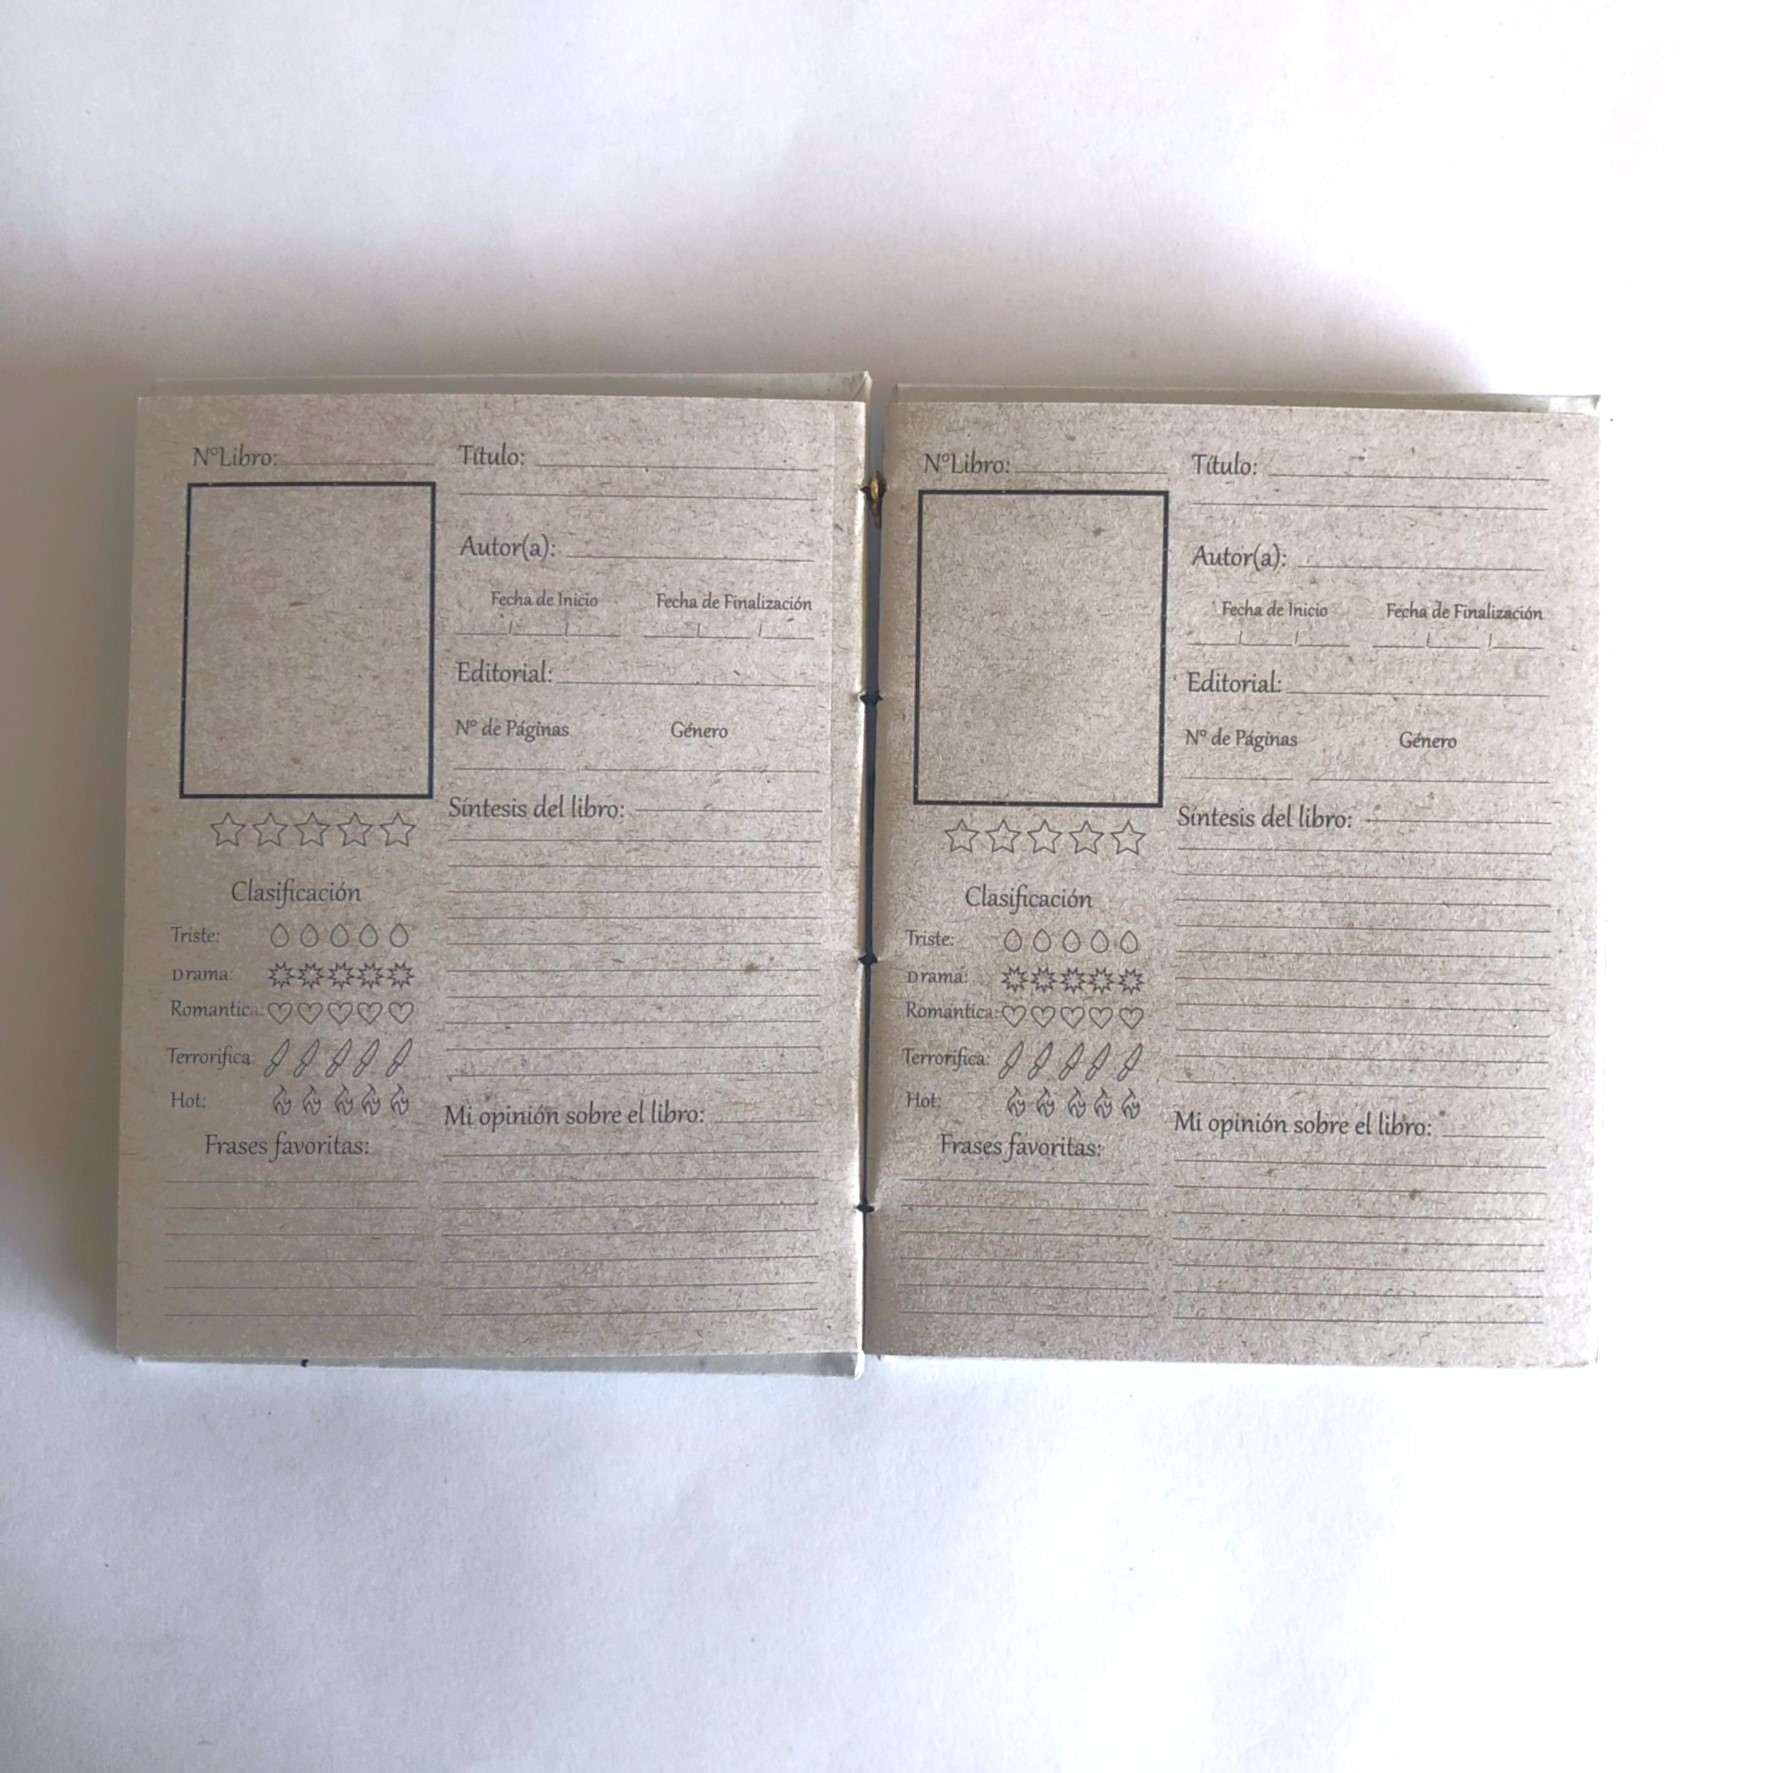 N°Libro:
Título:
Autor(a):
Fecha de Inicio Fecha de Finalización
Editorial:
N° de Páginas Género
Síntesis del libro:
Clasificación
Triste:
Drama:
Romantica:
Terrorifica
Hot:
Frases favoritas:
Mi opinión sobre el libro:
N°Libro:
Título:
Autor(a):
Fecha de Inicio Fecha de Finalización
Editorial:
N° de Páginas Género
Síntesis del libro:
Clasificación
Triste:
Drama:
Romantica:
Terrorifica:
Hot:
Frases favoritas:
Mi opinión sobre el libro: